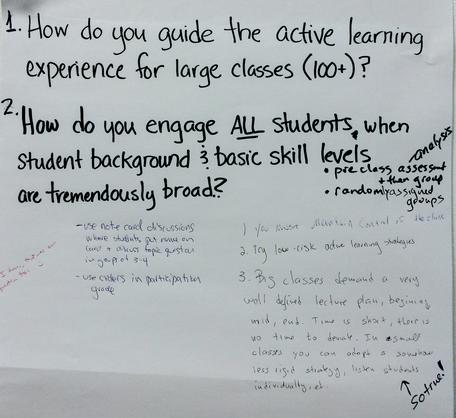 1. How do you guide the active learning
experience for large classes (100+)?
2. How do you engage ALL students, when
student background & basic skill levels
are tremendously broad?
analysis
• pre class assessment
+ then group
• randomly assigned
groups
- use note card discussions
where students put name on
card + discuss topic question
in group of 3-4
- use cards in participation
grade
1. You
control is the class
2. Try low-risk active learning strategies
3. Big classes demand a very
well defined lecture plan, begining
mid, end. Time is short, there is
no time to deviate. In small
classes you can adopt a somehow
less rigid strategy, listen students
individually, et.
So true!